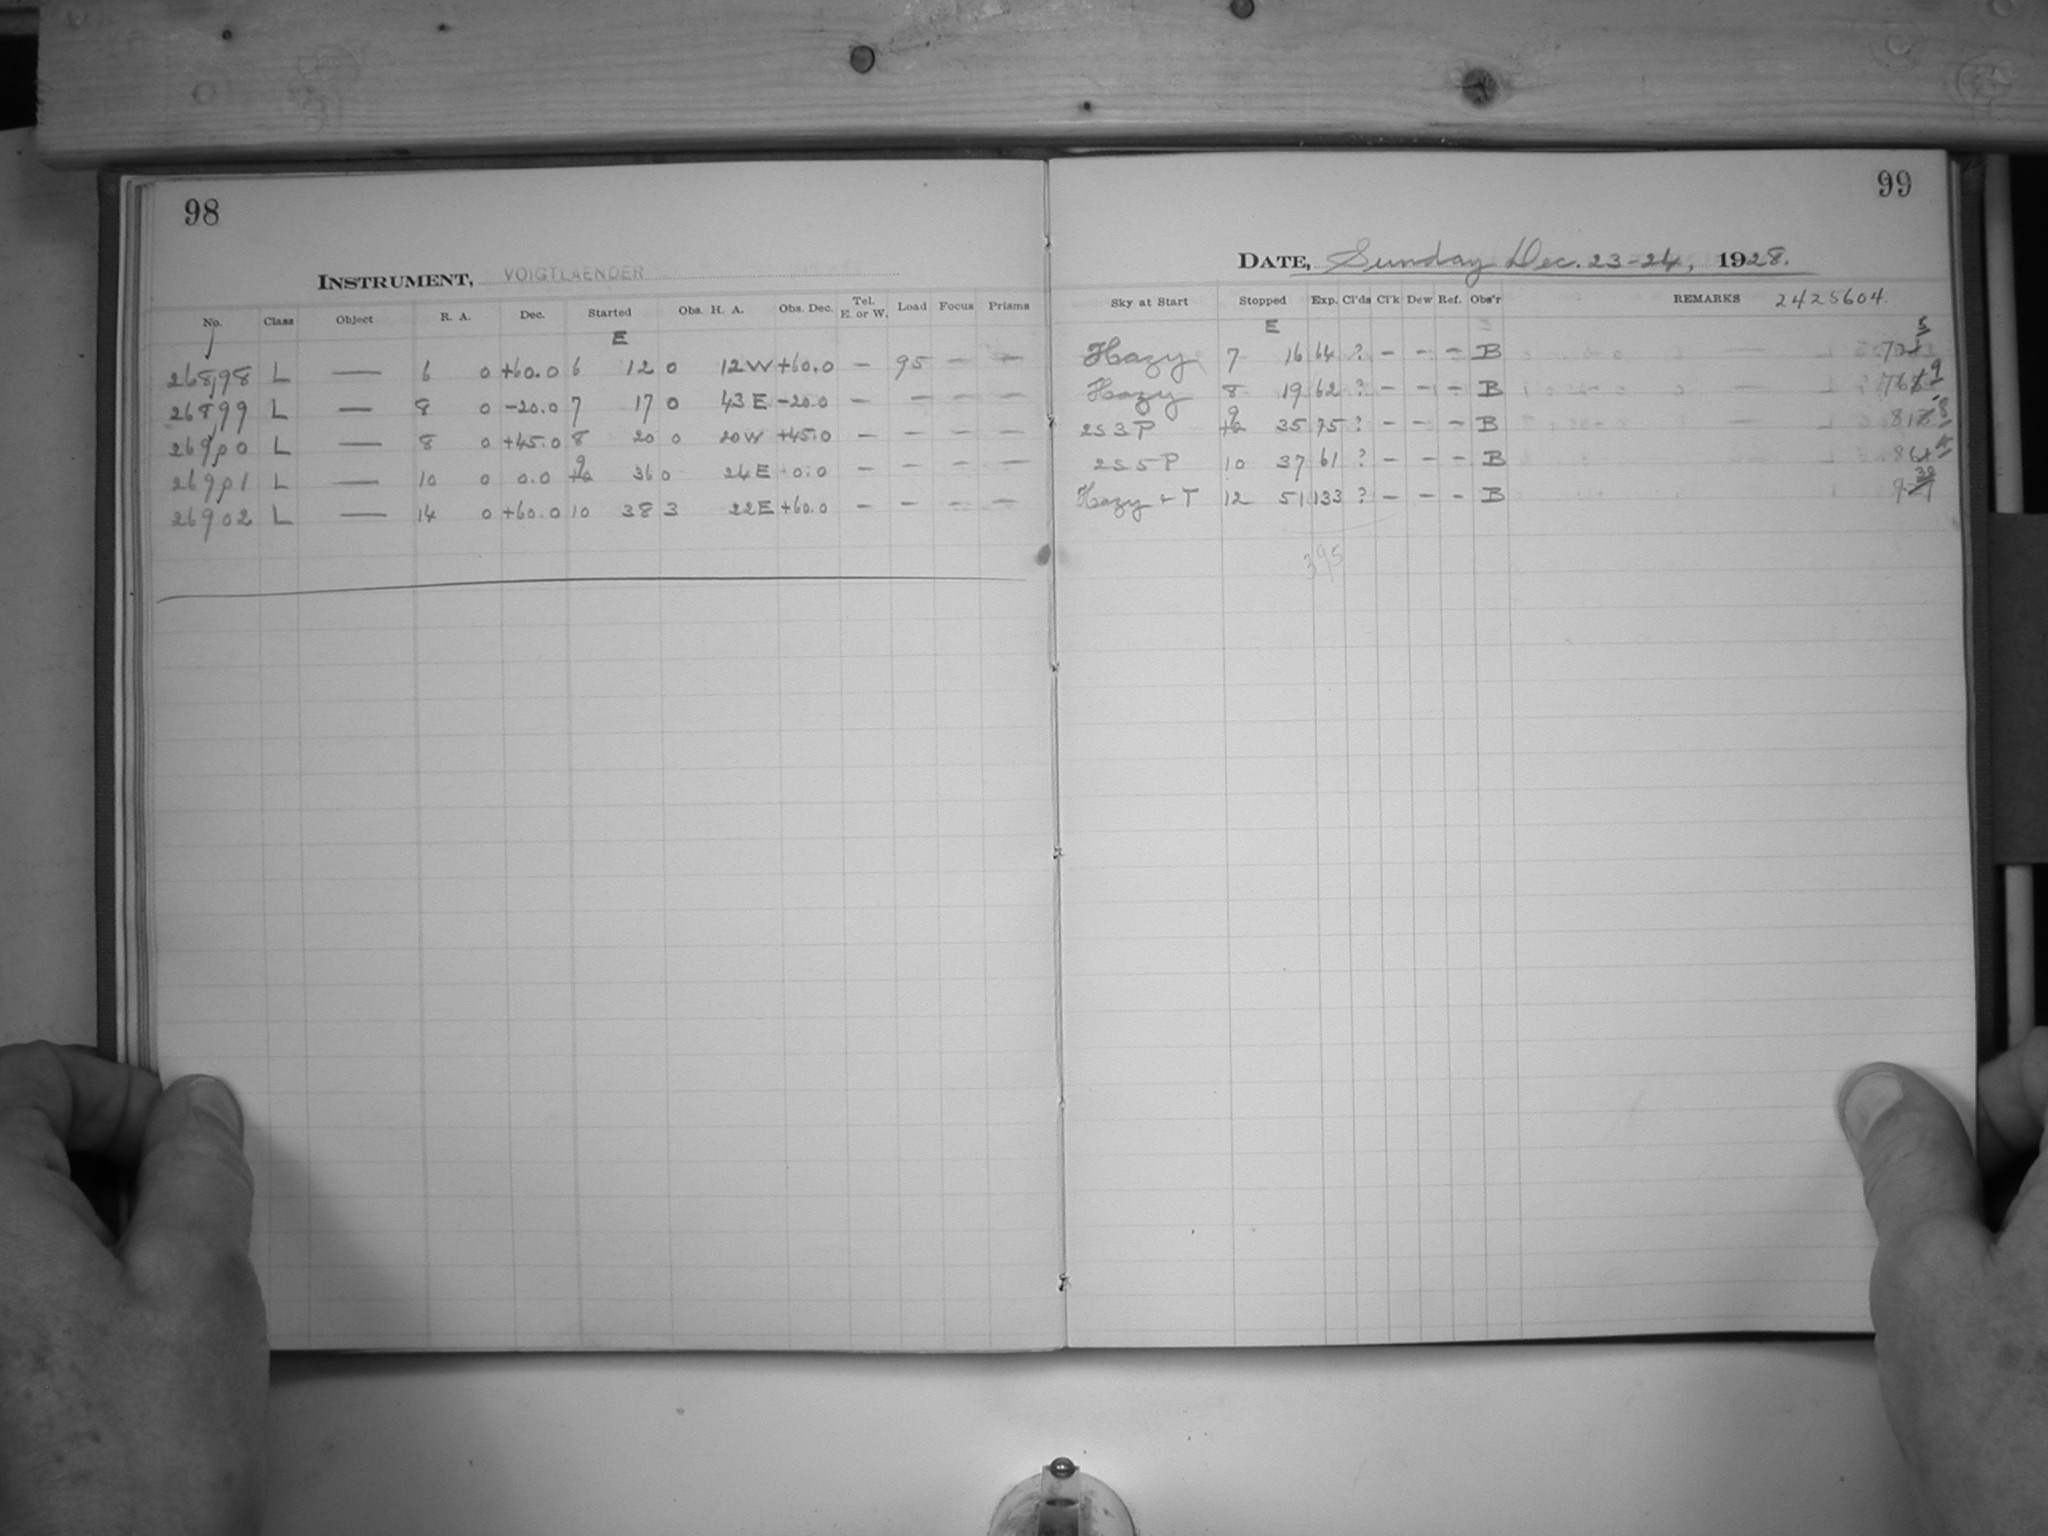 98
INSTRUMENT, VOIGTLAENDER
No. Class Object R. A. Dec. Started Obs. H. A. Obs. Dec. Tel. E. or W. Load Focus Prisms
E
26898 L — 6 0 +60.0 6 12 0 12 W +60.0 — 95 — —
26899 L — 8 0 -20.0 7 17 0 43 E -20.0 — — — —
26900 L — 8 0 +45.0 8 20 0 20 W +45.0 — — — —
26901 L — 10 0 0.0 9 36 0 24 E 0.0 — — — —
26902 L — 14 0 +60.0 10 38 3 22 E +60.0 — — — —
99
DATE, Sunday Dec. 23-24, 1928.
Sky at Start Stopped Exp. Cl'ds Cl'k Dew Ref. Obs'r REMARKS 2425604.
E
Hazy 7 16 64 ? - - - B
Hazy 8 19 62 ? - - - B
2S3P 9 35 75 ? - - - B
2S5P 10 37 61 ? - - - B
Hazy + T 12 51 133 ? - - - B
395